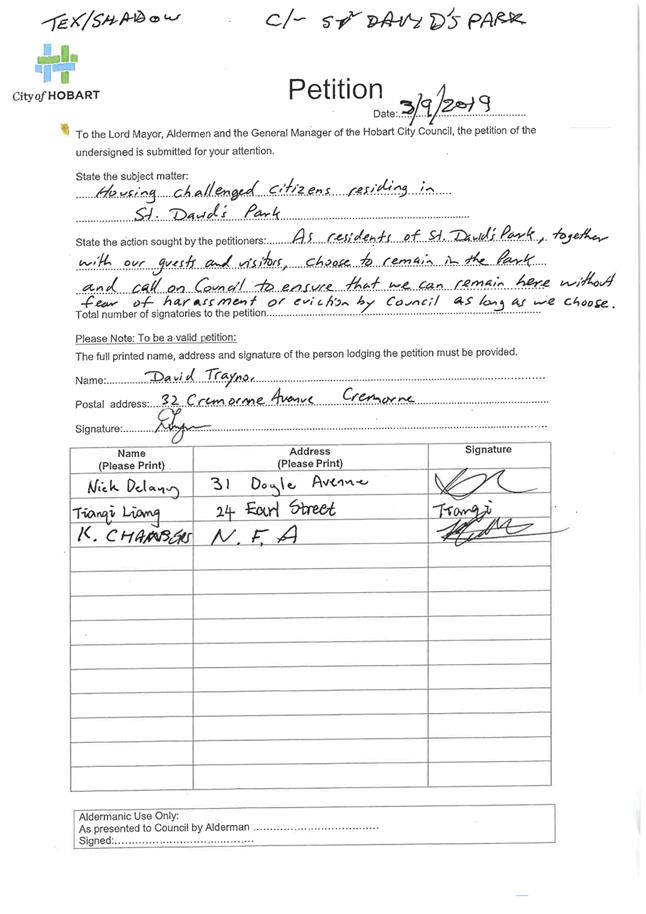 TEX/SHADOW C/- ST DAVID'S PARK
City of HOBART
Petition
Date: 3/9/2019
To the Lord Mayor, Aldermen and the General Manager of the Hobart City Council, the petition of the
undersigned is submitted for your attention.
State the subject matter:
Housing challenged citizens residing in
St. David's Park
State the action sought by the petitioners: As residents of St. David's Park, together
with our guests and visitors, choose to remain in the Park
and call on Council to ensure that we can remain here without
fear of harassment or eviction by Council as long as we choose.
Total number of signatories to the petition
Please Note: To be a valid petition:
The full printed name, address and signature of the person lodging the petition must be provided.
Name: David Traynor
Postal address: 32 Cremorne Avenue Cremorne
Signature:
Name Address Signature
(Please Print) (Please Print)
Nick Delany 31 Doyle Avenue
Tianqi Liang 24 Earl Street Tianqi
K. CHAMBERS N. F. A
Aldermanic Use Only:
As presented to Council by Alderman
Signed: